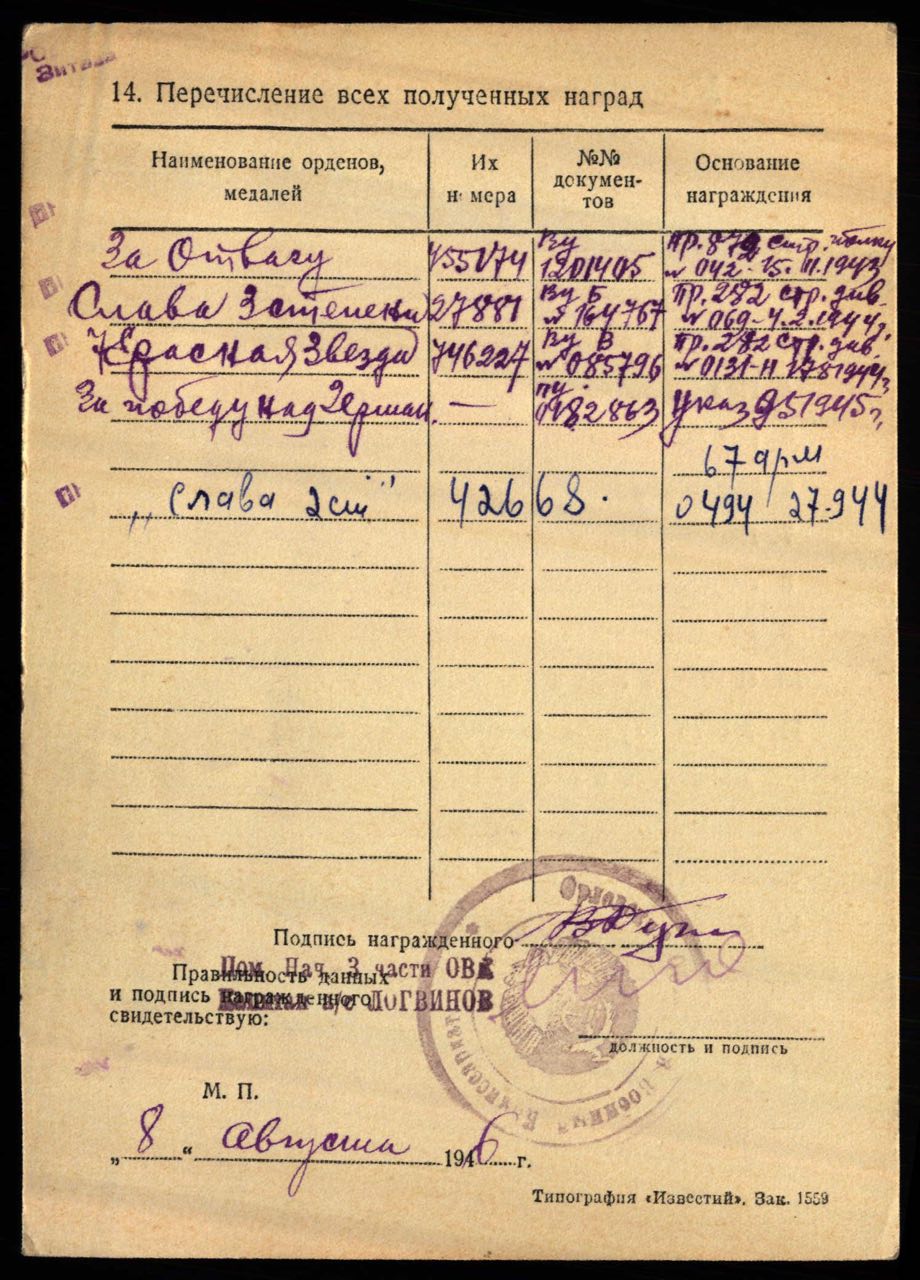 14. Перечисление всех полученных наград
Наименование орденов, медалей
Их номера
№№ документов
Основание награждения
За Отвагу 455174 ву 1201405 пр. 87 стр. полку № 042-15.III.1943
Слава 3 степени 27881 ву Б № 164767 пр. 282 стр. див. № 069-4.2.1944г.
Красная Звезда 746227 ву В № 085796 пр. 282 стр. див. № 0131-Н 17.8.1944г.
За победу над Герман. — 0182863 Указ 951945г.
67 арм
„Слава 2 ст" 42668. 0494 27-944
Подпись награжденного
Пом. Нач. 3 части ОВК
Правильность данных
и подпись награжденного
ЛОГВИНОВ
свидетельствую:
должность и подпись
М. П.
„8" августа 1946 г.
Типография «Известий». Зак. 1559